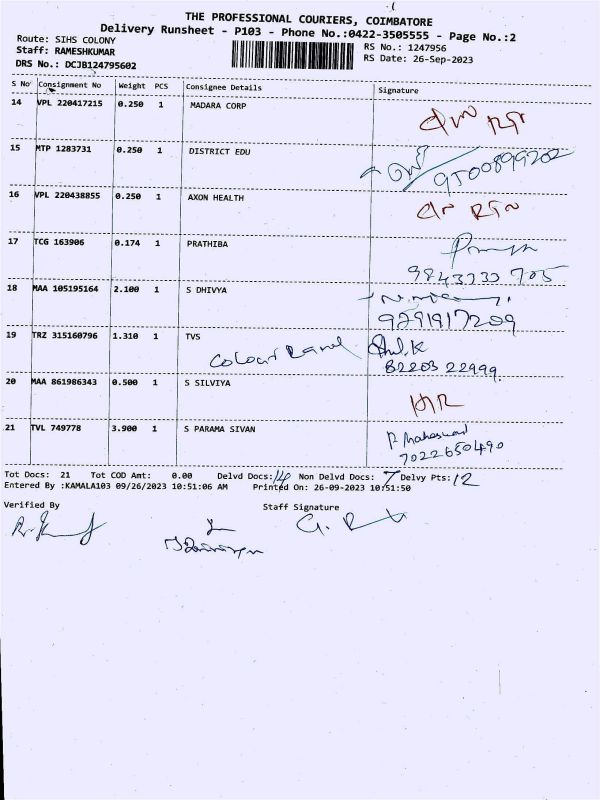 THE PROFESSIONAL COURIERS, COIMBATORE
Delivery Runsheet - P103 - Phone No.:0422-3505555 - Page No.:2
Route: SIHS COLONY
RS No.: 1247956
Staff: RAMESHKUMAR
RS Date: 26-Sep-2023
DRS No.: DCJB124795602
S No Consignment No Weight PCS Consignee Details Signature
14 VPL 220417215 0.250 1 MADARA CORP
15 MTP 1283731 0.250 1 DISTRICT EDU
9500899202
16 VPL 220438855 0.250 1 AXON HEALTH
17 TCG 163906 0.174 1 PRATHIBA
9843733 705
18 MAA 105195164 2.100 1 S DHIVYA
9291917209
19 TRZ 315160796 1.310 1 TVS
82203 22999
20 MAA 861986343 0.500 1 S SILVIYA
21 TVL 749778 3.900 1 S PARAMA SIVAN
7022650490
Tot Docs: 21 Tot COD Amt: 0.00 Delvd Docs: 14 Non Delvd Docs: 7 Delvy Pts: 12
Entered By :KAMALA103 09/26/2023 10:51:06 AM Printed On: 26-09-2023 10:51:50
Verified By Staff Signature